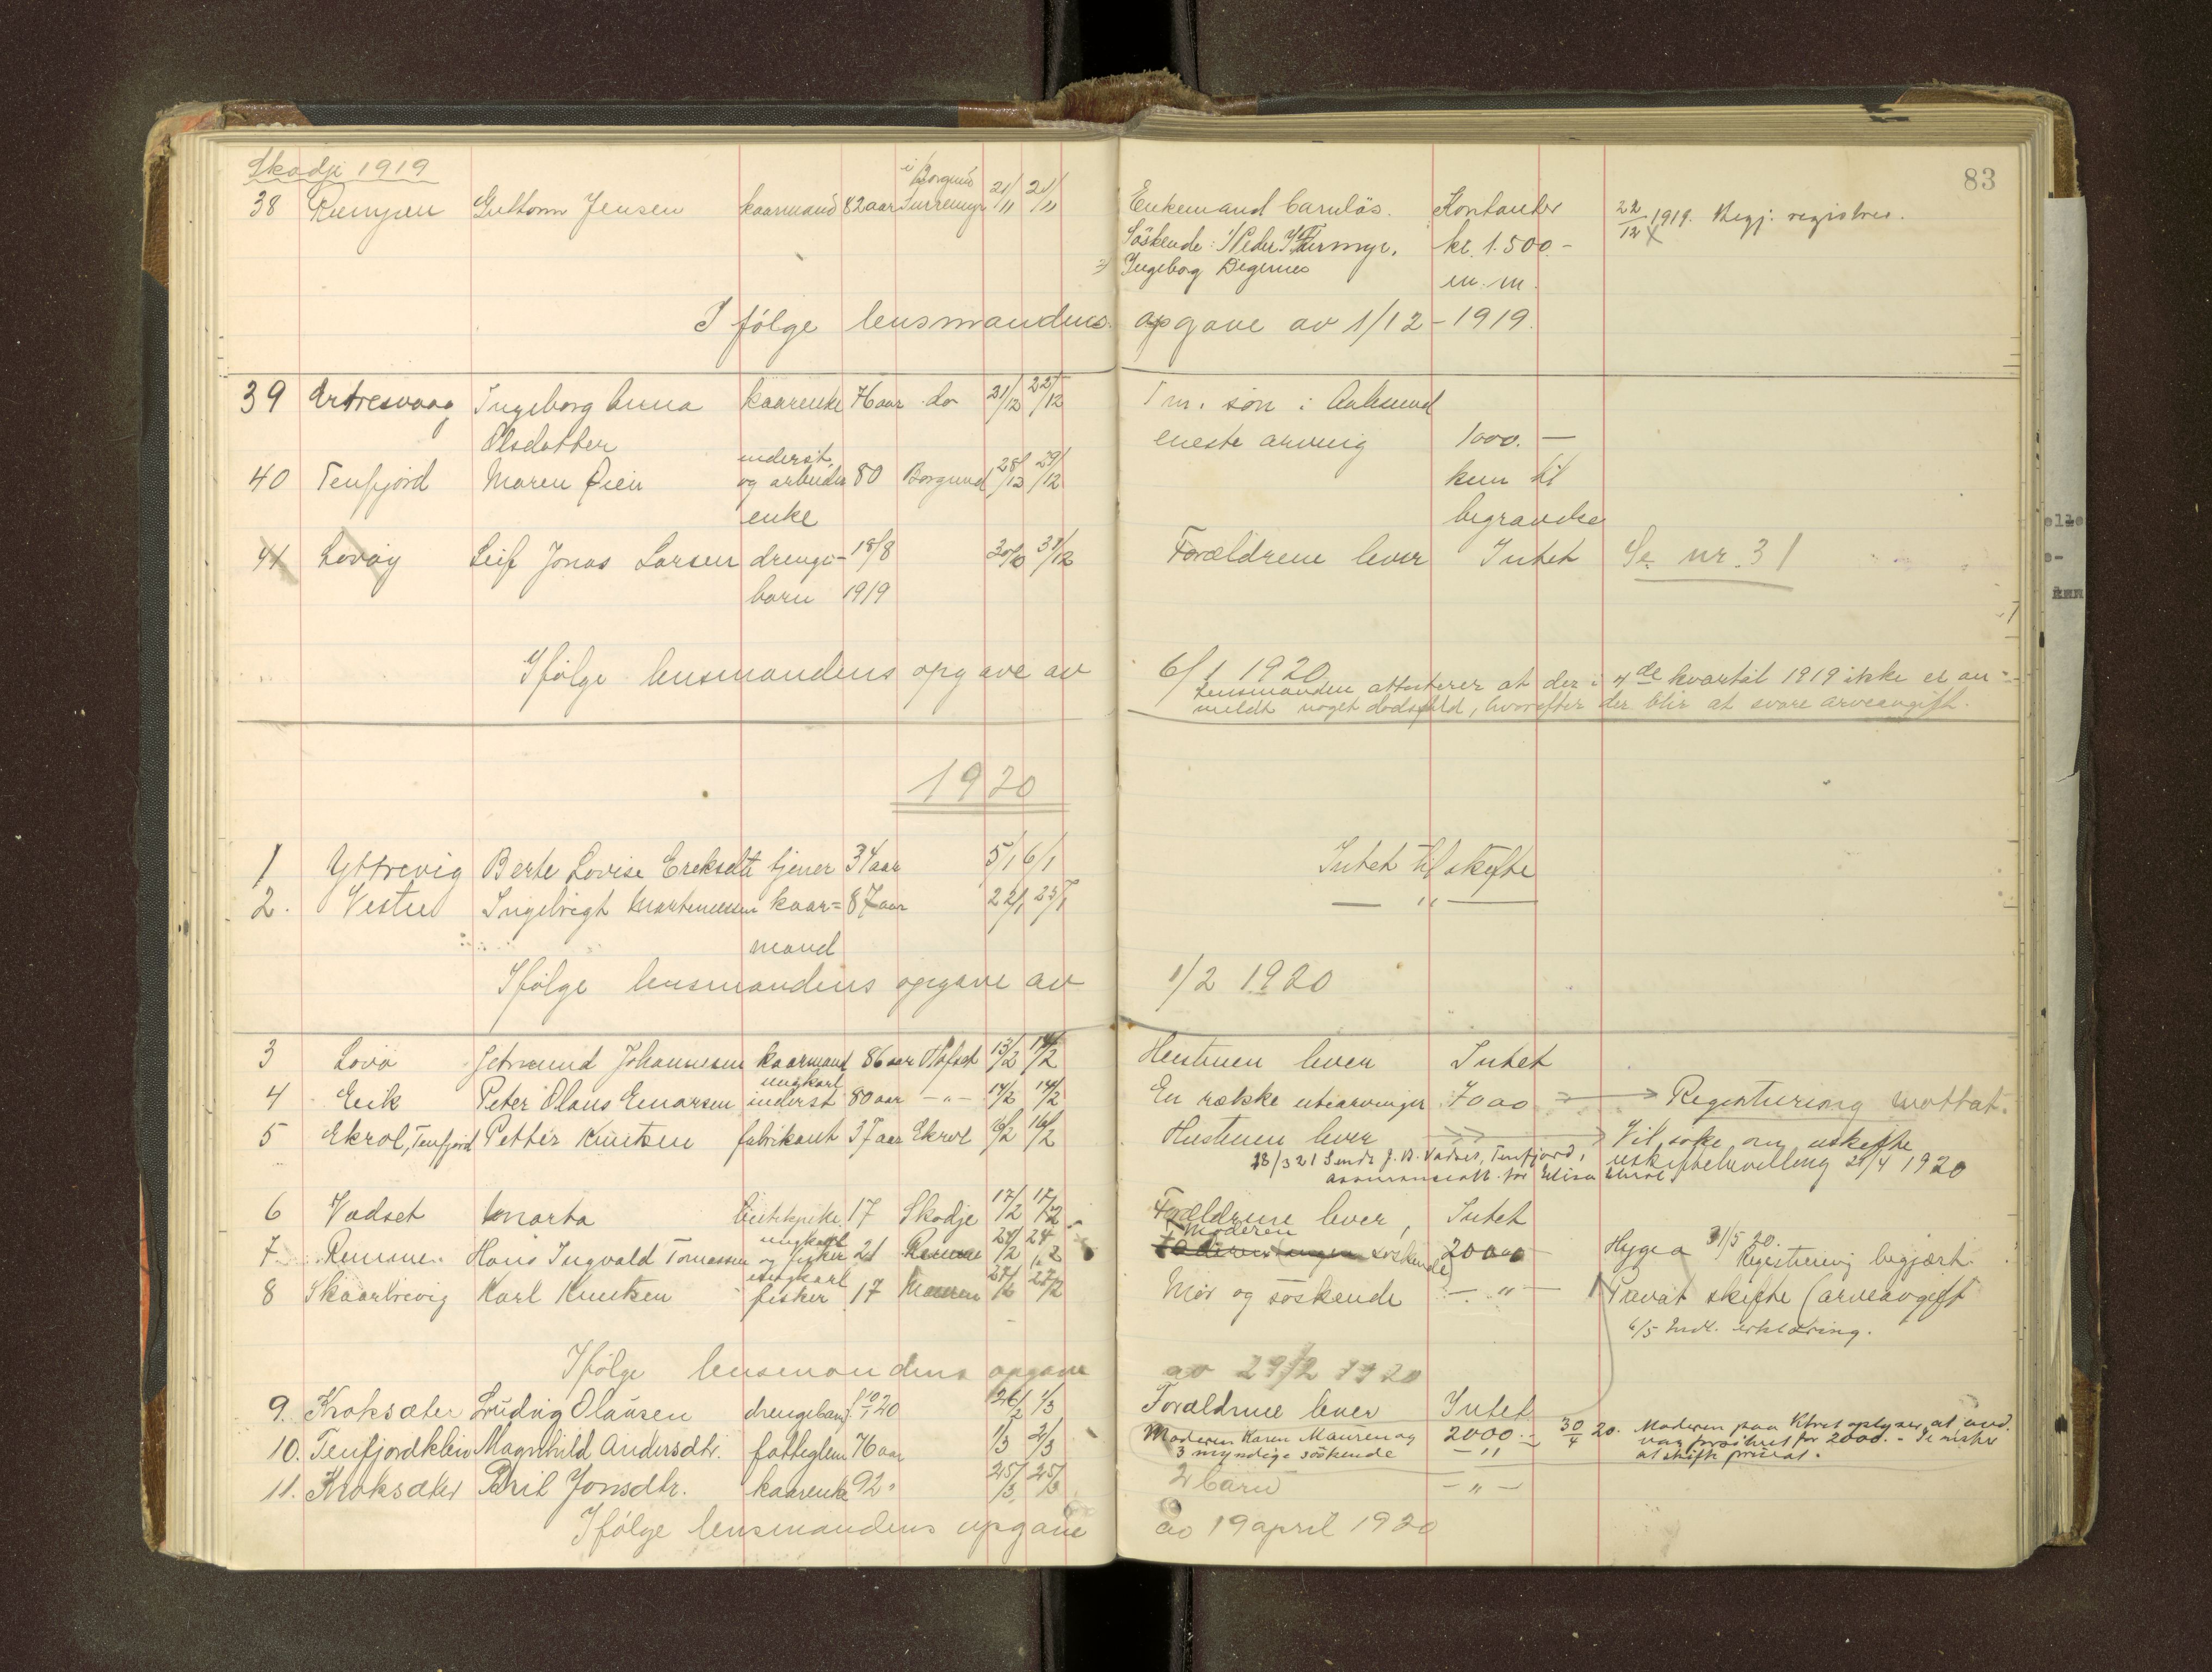 Skodje 1919
83
i Borgund
38 Guttorm Jensen kaarmand 82 aar Surremyr 21/11 21/11 Enkemand barnløs. Kontanter 22/12 1919. Begj. registrer.
Søskende: 1/ Peder kr. 1.500.-
2) Ingeborg Digernes m.m.
Ifølge lensmandens opgave av 1/12 - 1919.
39 Urtresvaag Ingeborg Anna kaarenke 76 aar do 21/12 22/12 1 m. søn i Aalesund
Olsdatter eneste arving 1000.—
inderst
40 Tenfjord Maren Øien og arbeider 80 Borgund 28/12 29/12 kun til
enke begravelse
41 Lovåg Leif Jonas Larsen drenge- 18/8 Forældrene lever Intet Se nr. 31
barn 1919
Ifølge lensmandens opgave av 6/1 1920
Lensmanden attesterer at der i 4de kvartal 1919 ikke er an-
meldt noget dødsfald, hvorefter der blir at svare arveavgift.
1920
1 Yttrevig Berte Lovise Ereksdtr tjener 34 aar 5/1 6/1 Intet til skifte
2. Vestre Ingebrigt Martinussen kaar= 87 aar 22/1 23/1 — " —
mand
Ifølge lensmandens opgave av 1/2 1920
3 Lovø Getmund Johannesen kaarmand 86 aar 13/2 14/2 Hustruen lever Intet
ungkarl
4 Eik Peter Olaus Einarsen inderst 80 aar — " — 14/2 14/2 En række utearvinger 7000 Registrering mottat.
5 Ekrol, Tenfjord Petter Knutsen fabrikant 37 aar Ekrol 16/2 Hustruen lever Vil søke om uskifte
28/3 21 Sendt J. B. Vadset, Tenfjord, uskiftebevilling 21/4 1920
assuranseatt. for Elisa Ekrol
6 Vadset Marta pike 17 Skodje 17/2 17/2 Forældrene lever, Intet
ungkarl Moderen
7 Remme. Hans Ingvald Tomassen og fisker 21 Remme 24/2 24/2 søskende 2000 Hygea 31/5 20. Registrering begjært.
ungkarl
8 Skaarbrevig Karl Knutsen fisker 17 27/2 27/2 Mor og søskende — " — Privat skifte (arveavgift
6/5 Indl. erklæring.
Ifølge lensmandens opgave av 29/2 1920
9. Kroksæter Ludvig Olausen drengebarn f. 10/1 20 26/2 1/3 Forældrene lever Intet
10. Tenfjordkleiv Magnhild Andersdtr. fatteglem 76 aar 1/3 2/3 Moderen Karen Mauren og 2000.- 30/4 20. Moderen paa Ktret oplyser, at avd.
3 myndige søskende — " var forsikret for 2000.- De ønsker
at skifte privat.
11. Kroksæter Bril Jonsdtr. kaarenke 92 " 25/3 25/3 2 barn — " —
Ifølge lensmandens opgave av 19 april 1920